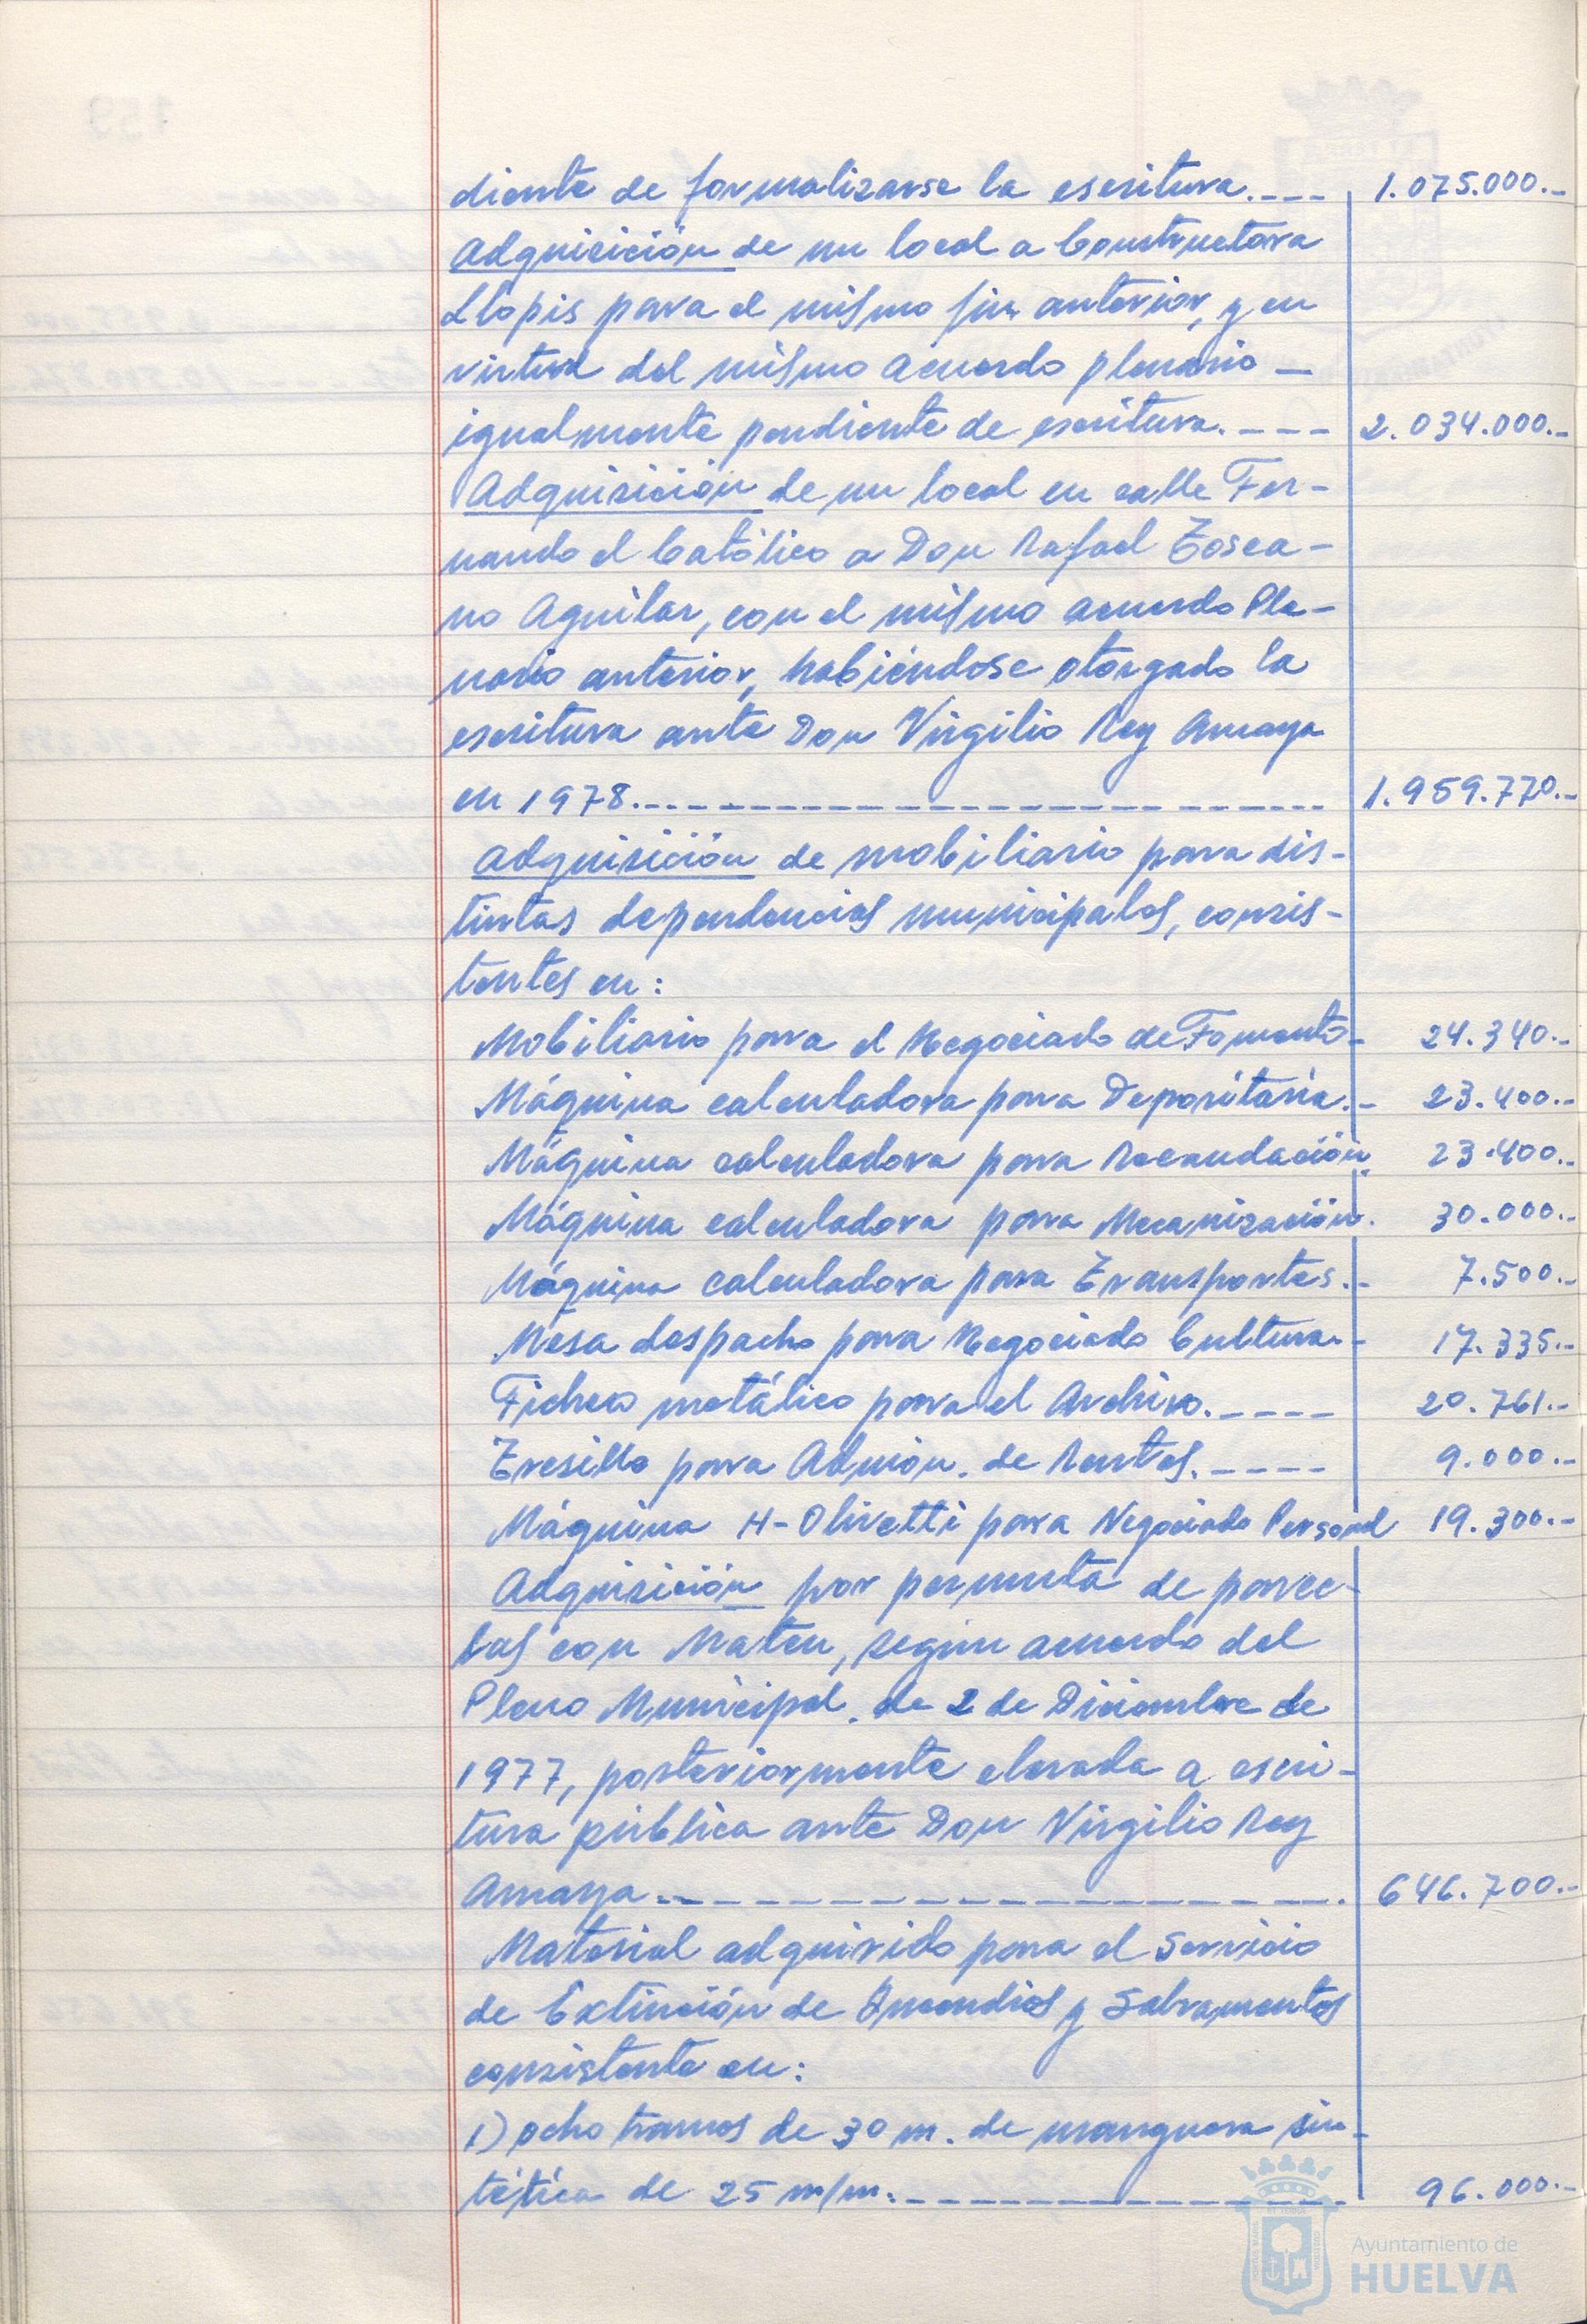 diente de formalizarse la escritura.--- 1.075.000.-
Adquisición de un local a Constructora
Llopis para el mismo fin anterior, y en
virtud del mismo acuerdo plenario -
igualmente pendiente de escritura.--- 2.034.000.-
Adquisición de un local en calle Fer-
nando el Católico a Don Rafael Tosca-
no Aguilar, con el mismo acuerdo Ple-
nario anterior, habiéndose otorgado la
escritura ante Don Virgilio Rey Amaya
en 1978.--- 1.959.770.-
Adquisición de mobiliario para dis-
tintas dependencias municipales, consis-
tentes en:
Mobiliario para el Negociado de Fomento- 24.340.-
Máquina calculadora para Depositaría.- 23.400.-
Máquina calculadora para Recaudación. 23.400.-
Máquina calculadora para Mecanización. 30.000.-
Máquina calculadora para Transportes.- 7.500.-
Mesa despacho para Negociado Cultura.- 17.335.-
Fichero metálico para el Archivo.---- 20.761.-
Tresillo para Admión. de Rentas.---- 9.000.-
Máquina H-Olivetti para Negociado Personal 19.300.-
Adquisición por permuta de parce-
las con Mateu, según acuerdo del
Pleno Municipal. de 2 de Diciembre de
1977, posteriormente elevada a escri-
tura pública ante Don Virgilio Rey
Amaya.--- 646.700.-
Material adquirido para el Servicio
de Extinción de Incendios y Salvamentos
consistente en:
1) ocho tramos de 30 m. de manguera sin-
tética de 25 m/m.--- 96.000.-
Ayuntamiento de
HUELVA